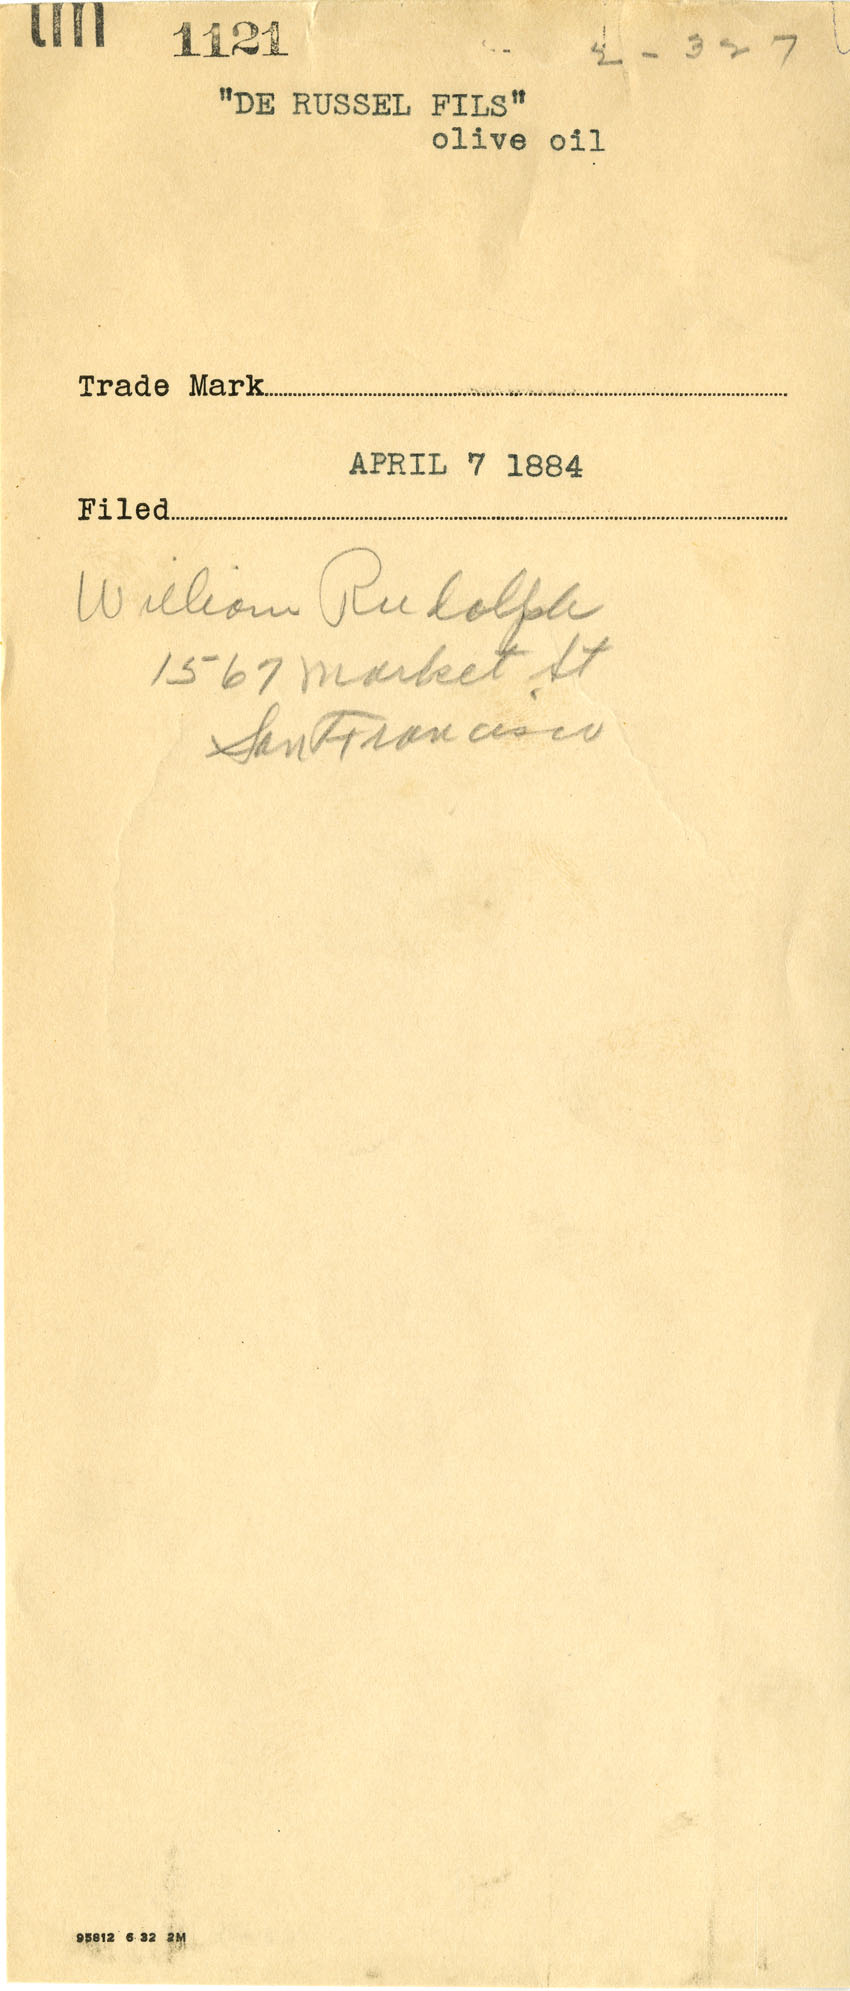 1121
2-327
"DE RUSSEL FILS"
olive oil
Trade Mark
APRIL 7 1884
Filed
William Rudolph
1567 Market St
San Francisco
95812 6 32 2M